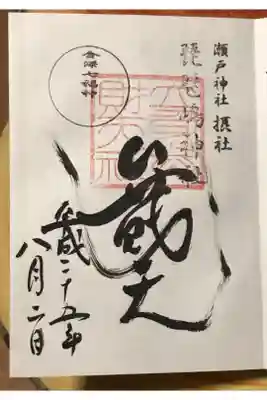 瀬戸神社 摂社
琵琶嶋神社
弁財天
金澤七福神
平成二十五年
八月二日